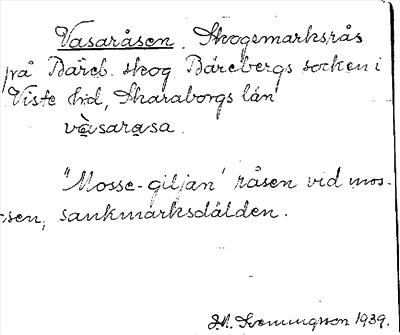 Vasaråsen. Skogsmarksrås
på Bäreb. skog Bärebergs socken i
Viste hd, Skaraborgs län
vàsarasa.
"Mosse-giljan" råsen vid mos-
sen, sankmarksdälden.
1939.